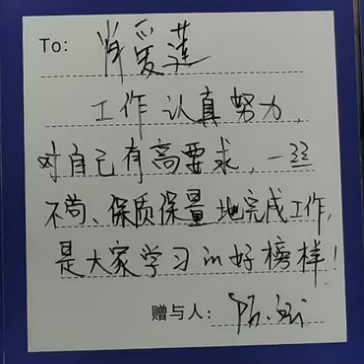 To: 肖爱莲
工作认真努力,
对自己有高要求,一丝
不苟、保质保量地完成工作,
是大家学习的好榜样!
赠与人: